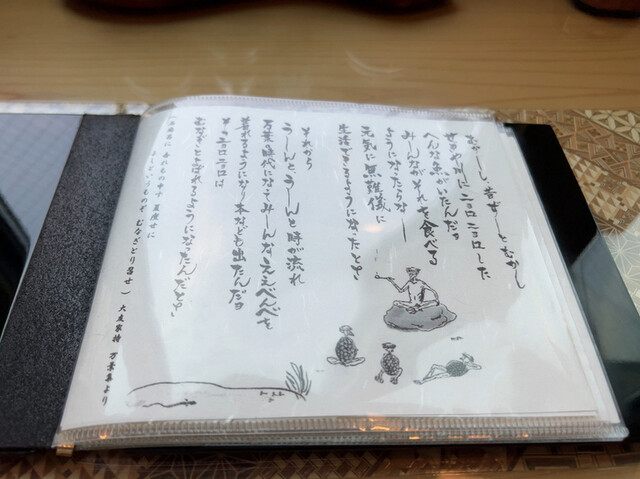 むかーし、昔ずーとむかし
せせやかにニョロニョロした
へんな魚がいたんだョ
みーんながそれを食べる
ようになったらなー
元気に無難儀に
生活できるようになったとさ
それから
うーんとうーんと時が流れ
万葉の時代になってみーんなええべべを
着れるようになり本なども出たんだョ
そのニョロニョロは
むなぎとよばれるようになったんだとさ
(石麻呂に 吾れもの申す 夏痩せに
よしといふものぞ むなぎとり召せ) 大友家持 万葉集より